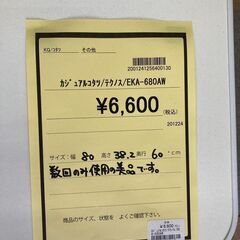 KG/コタツ その他
2001241256400130
カジュアルコタツ/テクノス/EKA-680AW
¥6,600
(税込)
201224
サイズ:幅 80 高さ 38.2 奥行 60 cm
数回のみ使用の美品です。
商品のサイズ、状態を よくご確認下さい。
¥6,600